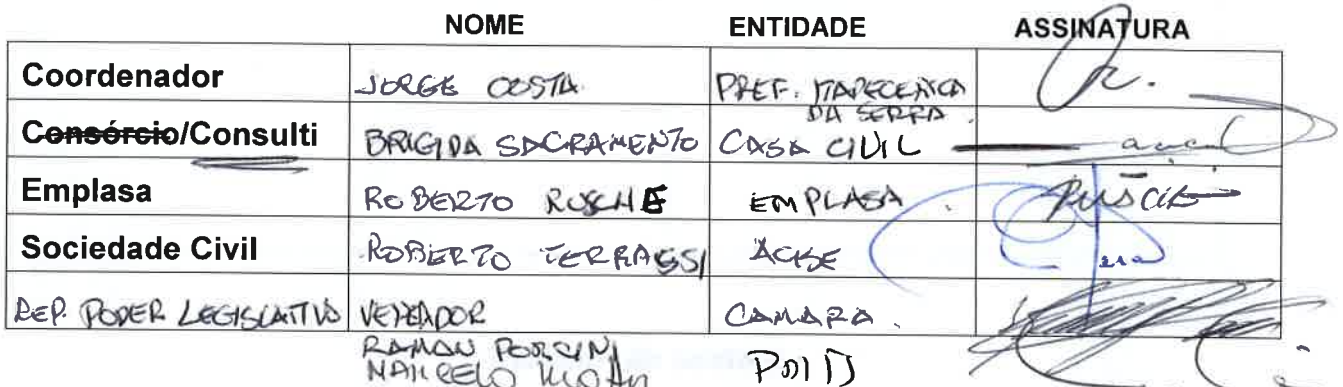 NOME ENTIDADE ASSINATURA
Coordenador JORGE COSTA PREF. ITAPECERICA DA SERRA.
Consórcio/Consulti BRIGIDA SACRAMENTO CASA CIVIL
Emplasa ROBERTO RUSCHE EMPLASA
Sociedade Civil ROBERTO TERRASSI ACISE
REP. PODER LEGISLATIVO VEREADOR CAMARA.
RAMON
MARCELO